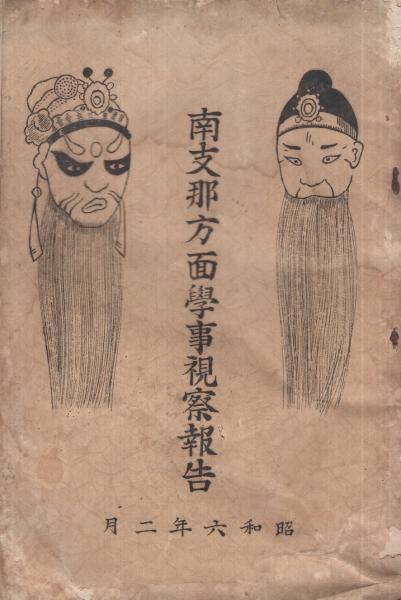 南支那方面學事視察報告
昭和六年二月